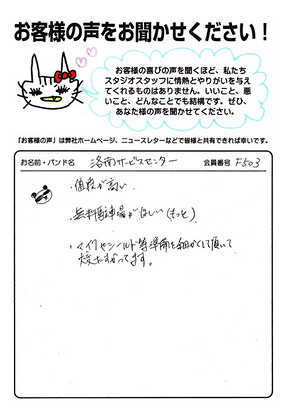 お客様の声をお聞かせください！
お客様の喜びの声を聞くほど、私たち
スタジオスタッフに情熱とやりがいを与え
てくれるものはありません。いいこと、悪
いこと、どんなことでも結構です。ぜひ、
あなた様の声を聞かせてください。
「お客様の声」は弊社ホームページ、ニュースレターなどで皆様と共有できれば幸いです。
お名前・バンド名 洛南サービスセンター 会員番号 F503
・値段が高い
・無料駐車場がほしい(もっと)
・マイクやシールド等準備を細かくして頂いて
大変たすかってます。